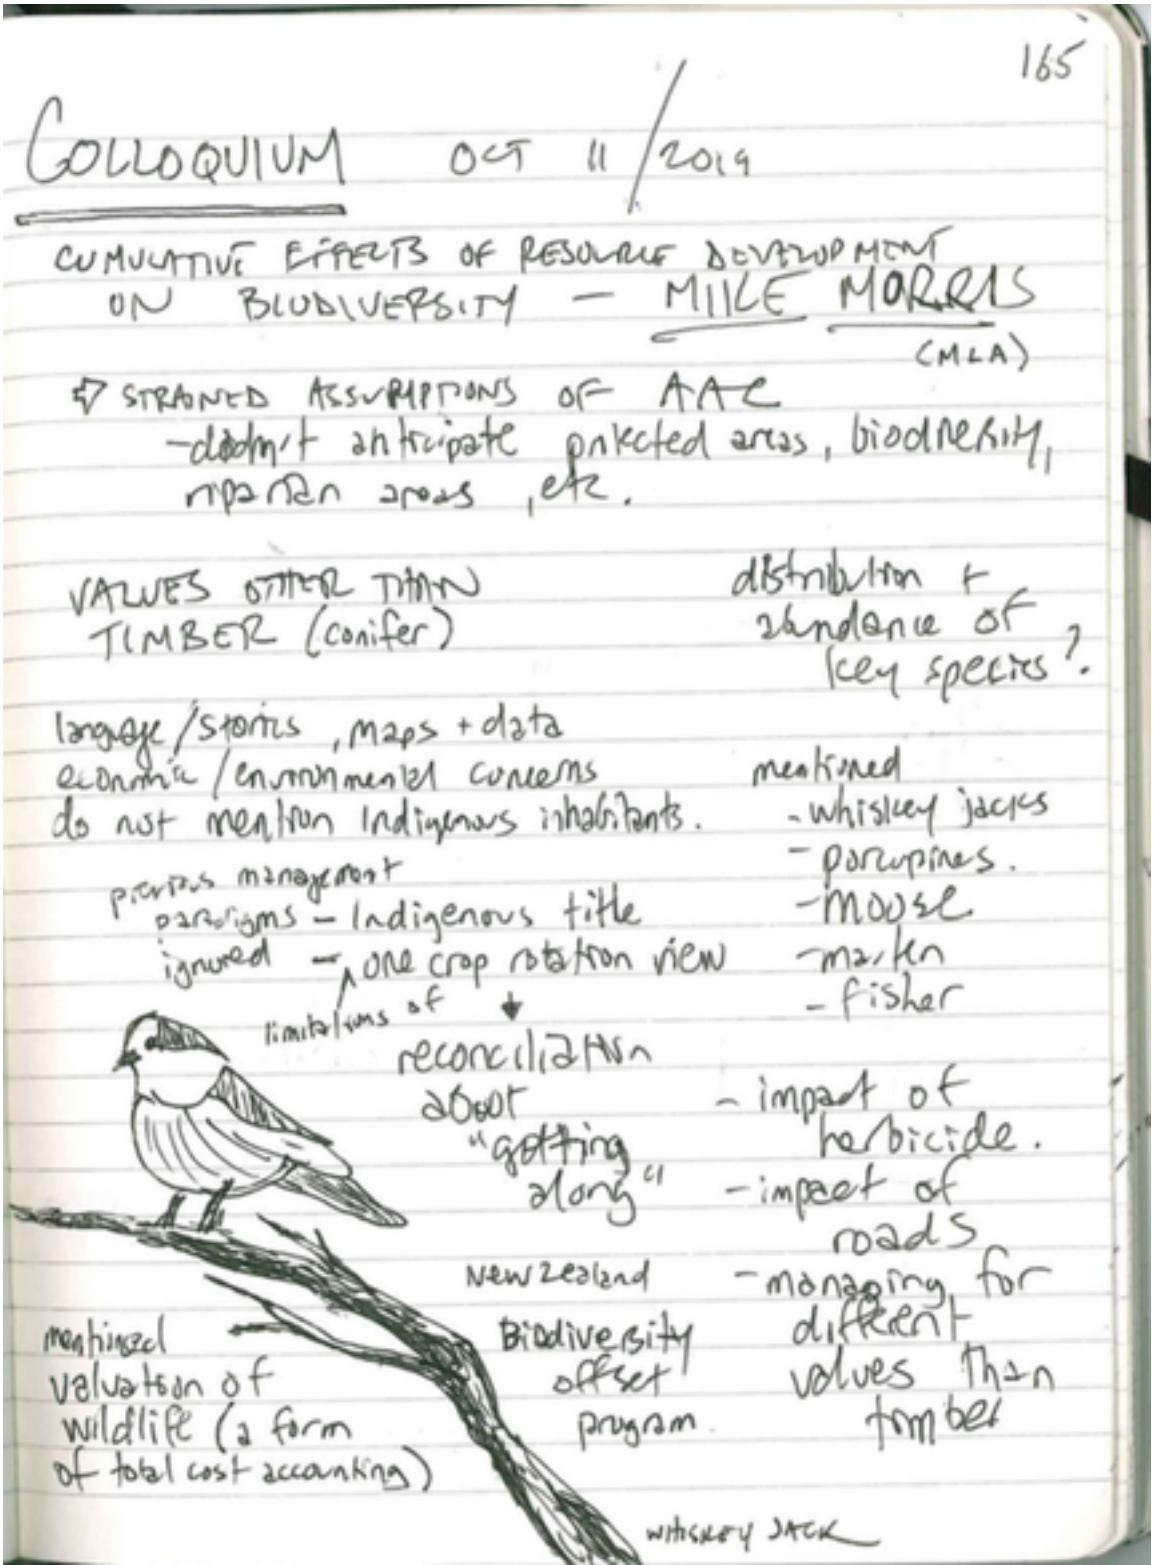 165
COLLOQUIUM OCT 11/2019
CUMULATIVE EFFECTS OF RESOURCE DEVELOPMENT
ON BIODIVERSITY — MIKE MORRIS
(MLA)
STRAINED ASSUMPTIONS OF AAC
- didn't anticipate protected areas, biodiversity,
riparian areas, etc.
VALUES OTHER THAN
TIMBER (conifer)
distribution +
abundance of
key species?
language/stories, maps + data
economic/environmental concerns
do not mention Indigenous inhabitants.
previous management
paradigms — Indigenous title
ignored — one crop rotation view
limitations of
reconciliation
about
"getting
along"
mentioned
- whiskey jacks
- porcupines.
- moose
- marten
- fisher
- impact of
herbicide.
- impact of
roads
- managing for
different
values than
timber
New Zealand
Biodiversity
offset
program.
mentioned
valuation of
wildlife (a form
of total cost accounting)
WHISKEY JACK